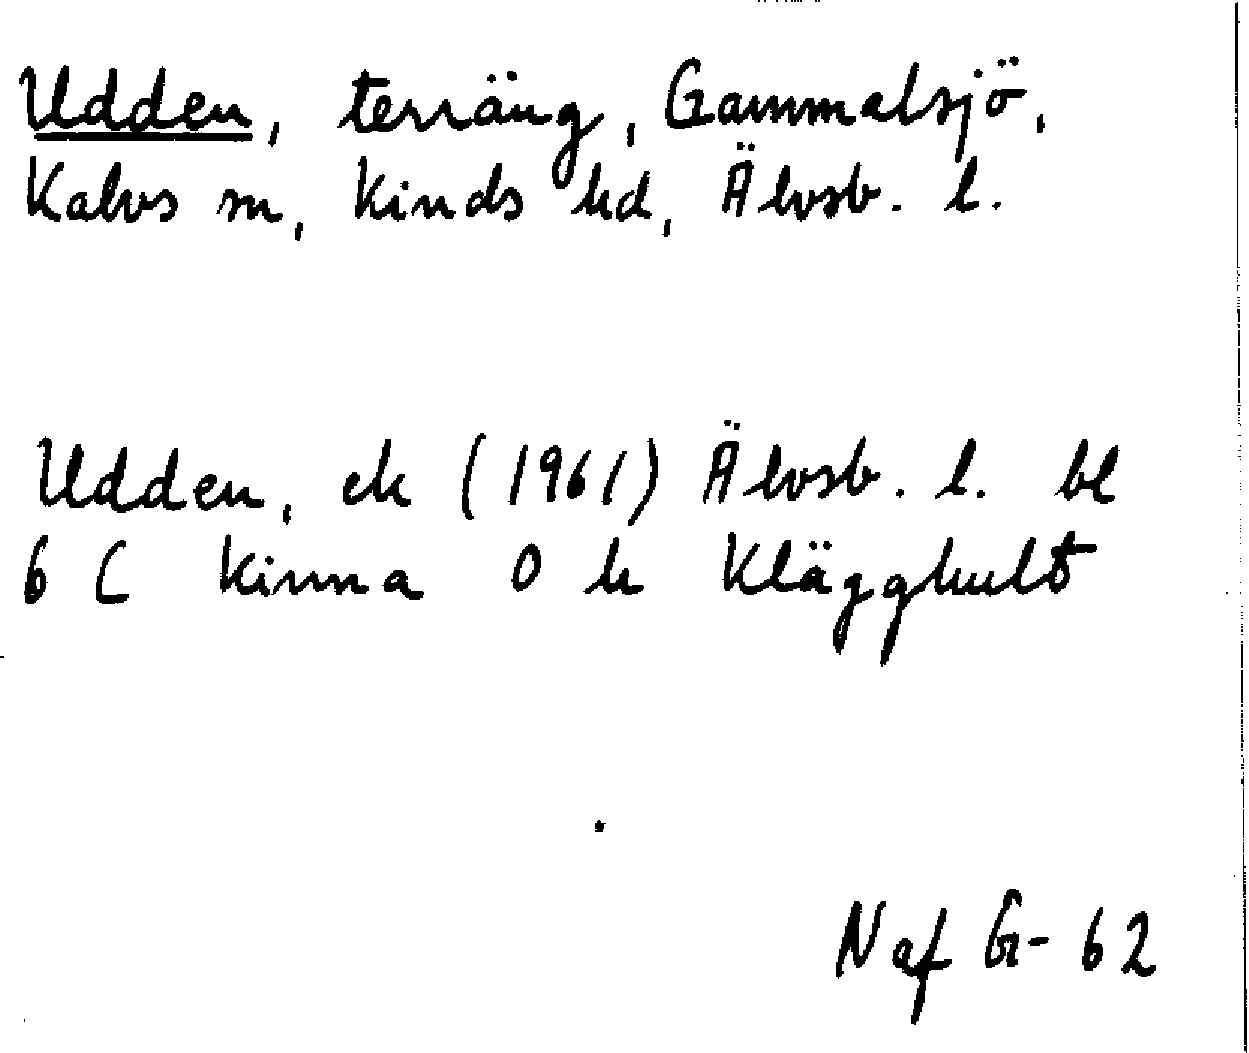 Udden, terräng, Gammalsjö,
Kalvs sn, Kinds hd, Älvsb. l.
Udden, ek (1961) Älvsb. l. bl
6 C Kinna O h Klägghult
Naf G-62